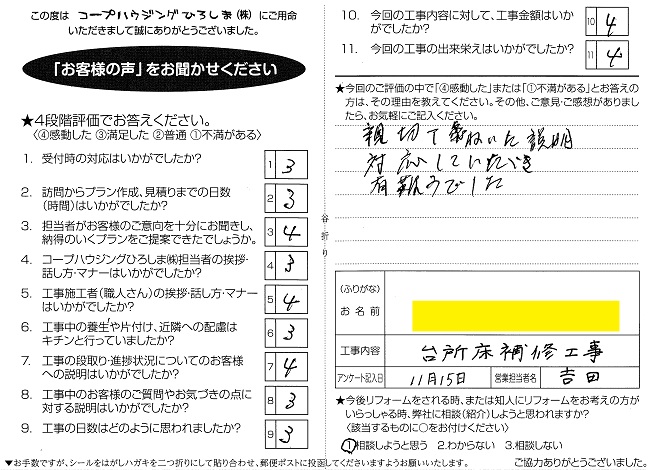 この度は コープハウジングひろしま(株) にご用命
いただきまして誠にありがとうございました。
「お客様の声」をお聞かせください
★4段階評価でお答えください。
〈④感動した ③満足した ②普通 ①不満がある〉
1. 受付時の対応はいかがでしたか? 1 3
2. 訪問からプラン作成、見積りまでの日数
(時間)はいかがでしたか? 2 3
3. 担当者がお客様のご意向を十分にお聞きし、
納得のいくプランをご提案できたでしょうか。 3 4
4. コープハウジングひろしま㈱担当者の挨拶・
話し方・マナーはいかがでしたか? 4 3
5. 工事施工者(職人さん)の挨拶・話し方・マナー
はいかがでしたか? 5 4
6. 工事中の養生や片付け、近隣への配慮は
キチンと行っていましたか? 6 3
7. 工事の段取り・進捗状況についてのお客様
への説明はいかがでしたか? 7 4
8. 工事中のお客様のご質問やお気づきの点に
対する説明はいかがでしたか? 8 3
9. 工事の日数はどのように思われましたか? 9 3
谷折り
10. 今回の工事内容に対して、工事金額はいか
がでしたか? 10 4
11. 今回の工事の出来栄えはいかがでしたか? 11 4
★今回のご評価の中で「④感動した」または「①不満がある」とお答えの
方は、その理由を教えてください。その他、ご意見・ご感想がありまし
たら、お気軽にご記入ください。
親切で いた説明
対応していただき
有難うでした
(ふりがな)
お名前
工事内容 台所床補修工事
アンケート記入日 11月15日 営業担当者名 吉田
★今後リフォームをされる時、または知人にリフォームをお考えの方が
いらっしゃる時、弊社に相談(紹介)しようと思われますか?
〈該当するものに○をお付けください〉
①相談しようと思う 2.わからない 3.相談しない
▼お手数ですが、シールをはがしハガキを二つ折りにして貼り合わせ、郵便ポストに投函してくださいますようお願いいたします。 ご協力ありがとうございました。